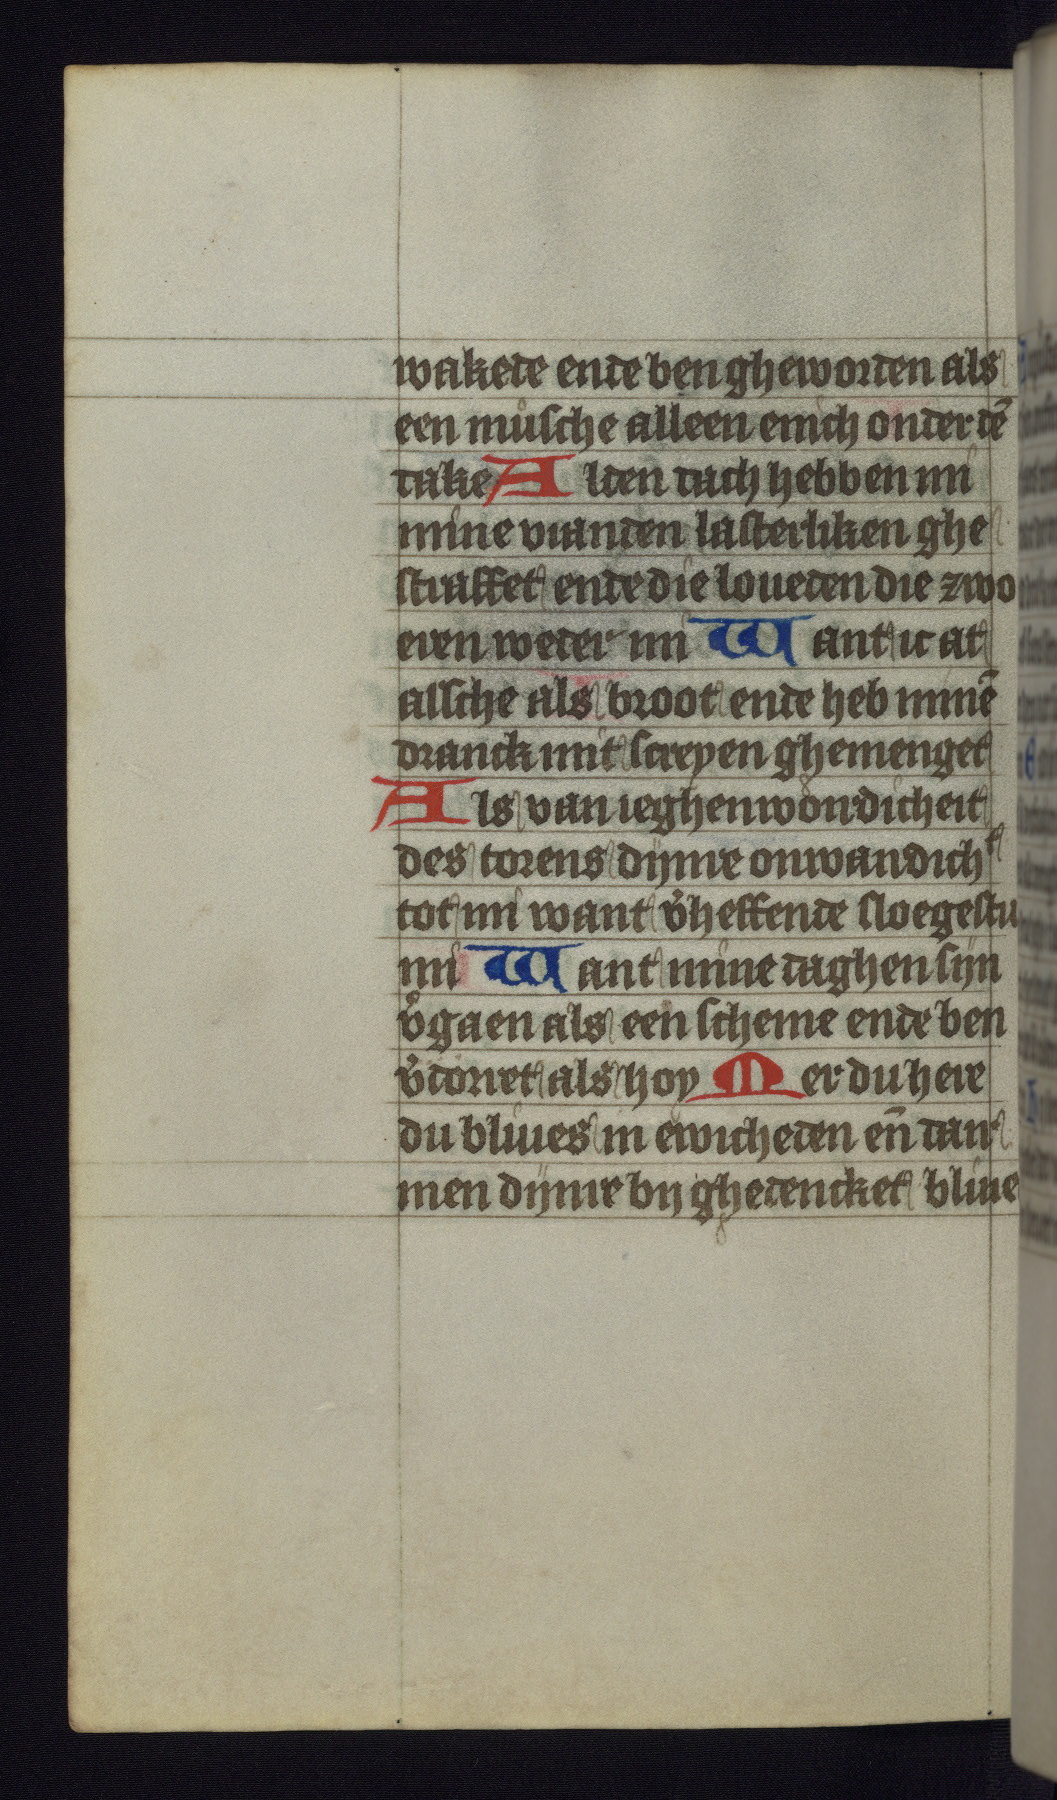 wakede ende ben gheworden als
een můsche alleen enich onder dē
dake Alden dach hebben mi
mine vianden lasterliken ghe
straffet ende die loueden die zwo
eren weder mi Want ic at
assche als broot ende heb minē
dranck mit screyen ghemenget
Als van ieghenwoordicheit
des torens dijnre onwandicht
tot mi want v̉heffende sloegestu
mi Want mine daghen sijn
v̉gaen als een scheme ende ben
v̉dorret als hoy Mer du here
du bliues in ewicheden en̄ dan
men dijnre bij ghedencket bliue